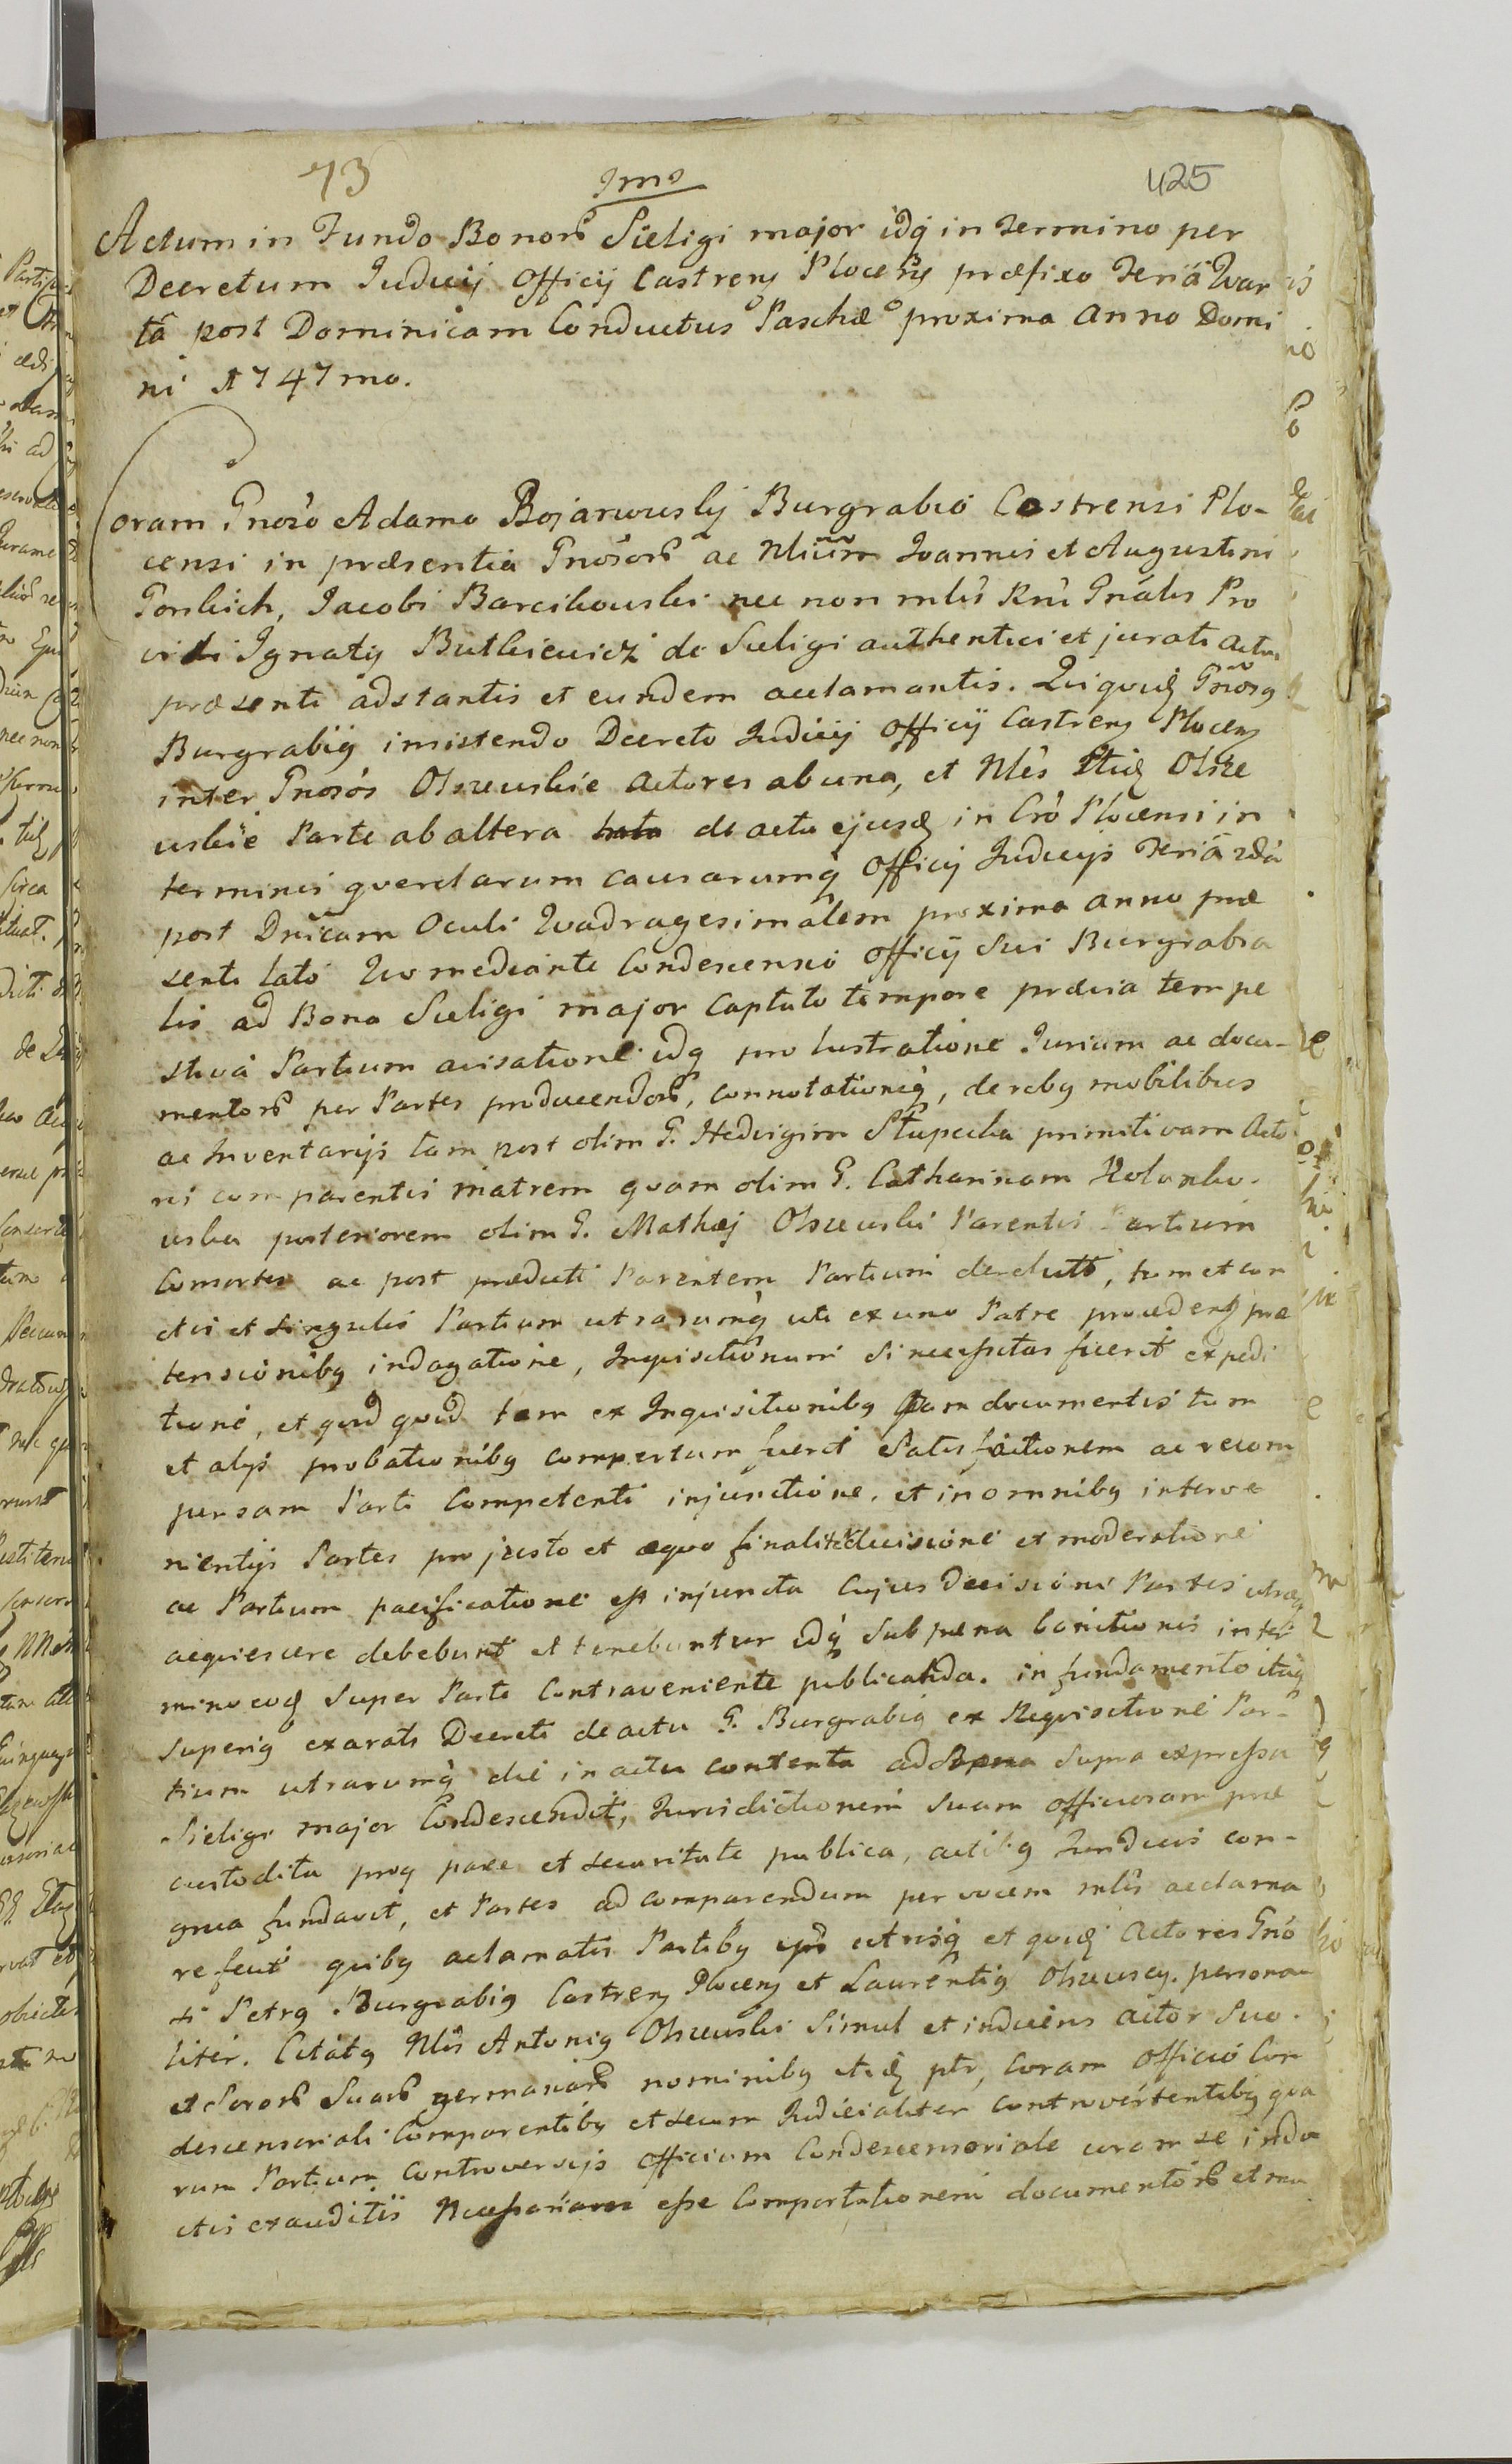 73 Imo 425
Actum in Fundo Bonorũ Sieligi major idq in Termino per
Decretum Judicij Officij Castrens Plocens præfixo Feriâ Quar
tâ post Dominicam Conductus Paschæ proxima Anno Domi
ni 1747mo.
Coram Gnoso Adamo Bojanowsky Burgrabio Castrensi Plo-
censi in præsentia Gnosorũ ac Nlium Joannis et Augustini
Jacobi Barcikowski nec non mlis Rni Gnalis Pro
vidi Ignatij Butkiewicz de Sieligi authentici et jurati actui
præsenti adstantis et eundem acclamantis. Qui quidq Gnosq
Burgrabiq insistendo Decreto Judicij Officij Castrens Plocens
inter Gnosos Olszewskie Actores ab una, et Nles Olsze
wskie Parte ab altera de actu ejusq in Cro Plocensi in
terminis querelarum causarumq Officij Judicijs Feriâ 2dâ
post Dnicam Oculi Quadragesimalem proxima anno præ
senti lato Quo mediante Condescensio Officij Sui Burgrabia
lis ad Bona Sieligi major Captato tempore prævia tempe
stivâ Partium avisatione idq pro lustratione Jurium ac docu-
mentorũ per Partes producendorũ, connotationeq, de rebq mobilibus
ac Inventarijs tam post olim G. Hedvigim Słupecka primitivam Acto
ris comparentis matrem quam olim G. Catharinam
wska posteriorem olim G. Mathæj Olszewski Parentis Partium
Consortes ac post prædicti Parentem Partium derelictis, tum et cun
ctis et singulis Partium utrarumq uti ex uno Patre procedens præ
tensionibq indagatione, Inquisitionum Si necessitas fuerit expedi
tione, et quid quid tam ex Inquisitionibq quam documentis tum
et alijs probationibq compertum fuerit Satisfactionem ac recom
pensam Parti Competenti injunctione. et in omnibq interve
nientijs Partes pro justo et æquo finali decisione et moderatione
ac Partium pacificatione est injuncta Cujus Decisioni Partes utræq
acquiescere debebunt et tenebuntur idq Sub pœna banitionis in ter
mino eoq Super Parte Contraveniente publicanda. in fundamento itaq
Superiq exarati Decreti de actu G. Burgrabiq ex Requisitione Par-
tium utrarumq die in actu contenta ad Bona Supra expressa
Sieligi major Condescendit, Jurisdictionem Suam officiosam præ
custodita prvq pace et securitate publica, actibq Judicii con-
grua fundavit, et Partes ad comparendum per vocem mlis acclama
re fecit quibq aclamatis Partibq utrisq et quidq Actores Gno
si Petrq Burgrabiq Castrens Plocens et Laurentiq Olszewscy. persona
liter. Citatq Nlis Antoniq Olszewski Simul et inducens actor Suo.
et Sororũ Suarũ germanarũ nominibq itidq ptr, Coram Officio Con
descensoriali Comparentibq et secum Judicialiter controvertentibq qua
rum Partium Controversijs Officium Condescensoriale coram se indu
ctis exauditis Necessariam esse Comportationem documentorũ et mu